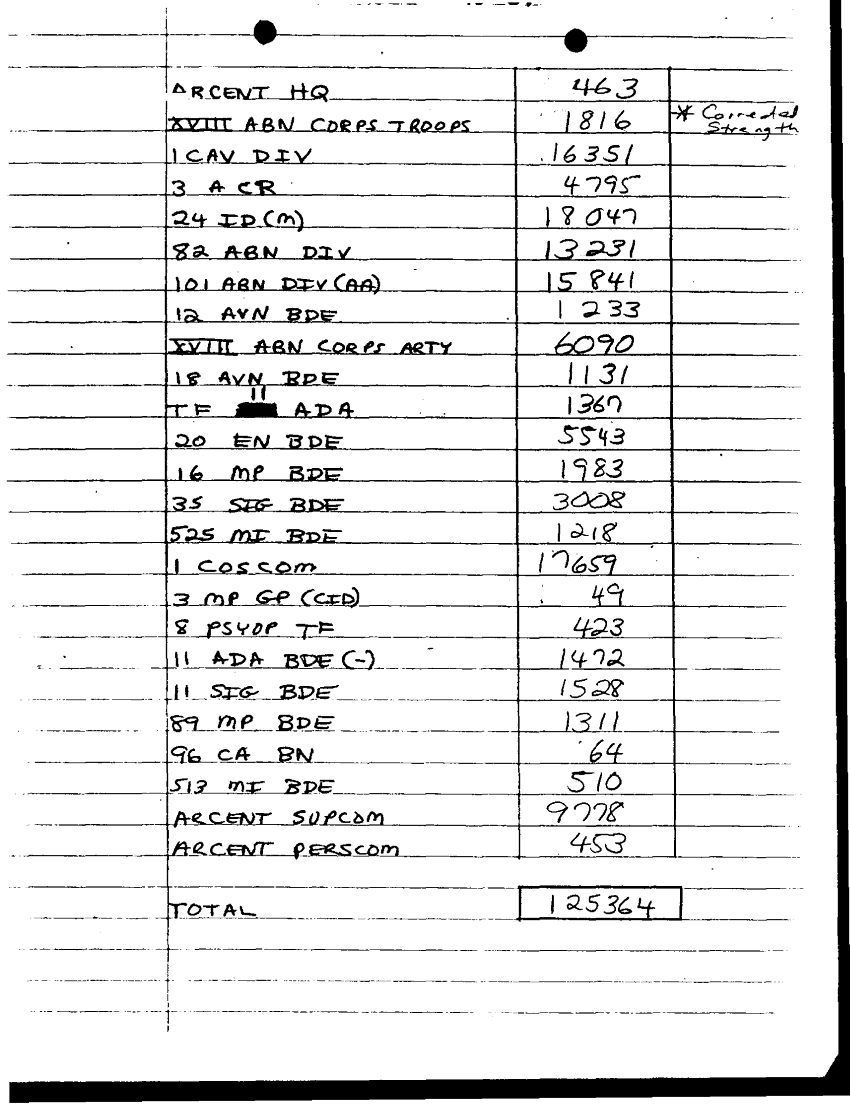 ARCENT HQ 463
XVIII ABN CORPS TROOPS 1816 * Corrected Strength
1 CAV DIV 16351
3 ACR 4795
24 ID (M) 18047
82 ABN DIV 13231
101 ABN DIV (AA) 15841
12 AVN BDE 1233
XVIII ABN CORPS ARTY 6090
18 AVN BDE 1131
TF 11 ADA 1367
20 EN BDE 5543
16 MP BDE 1983
35 SIG BDE 3008
525 MI BDE 1218
1 COSCOM 17659
3 MP GP (CID) 49
8 PSYOP TF 423
11 ADA BDE (-) 1472
11 SIG BDE 1528
89 MP BDE 1311
96 CA BN 64
513 MI BDE 510
ARCENT SUPCOM 9778
ARCENT PERSCOM 453
TOTAL 125364